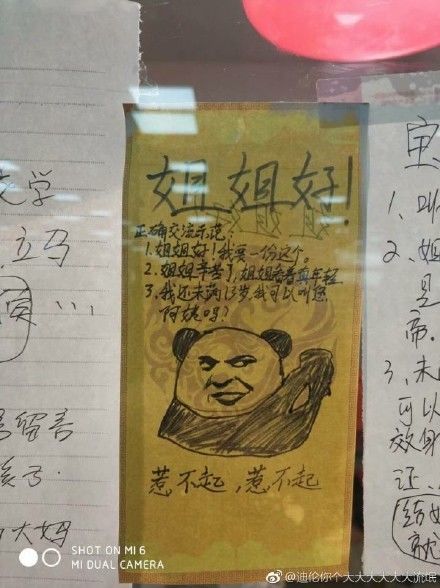 姐姐好!
正确交流示范:
1.姐姐好!我要一份这个。
2.姐姐辛苦了,姐姐看着真年轻
3.我还未满13岁,我可以叫您
阿姨吗?
惹不起,惹不起
文学
立马
留言
大妈
1、叫
2、姐
是
帝.
3、未
可以
效身
证、
就
SHOT ON MI 6
MI DUAL CAMERA
@迪伦你个大大大大大大流氓